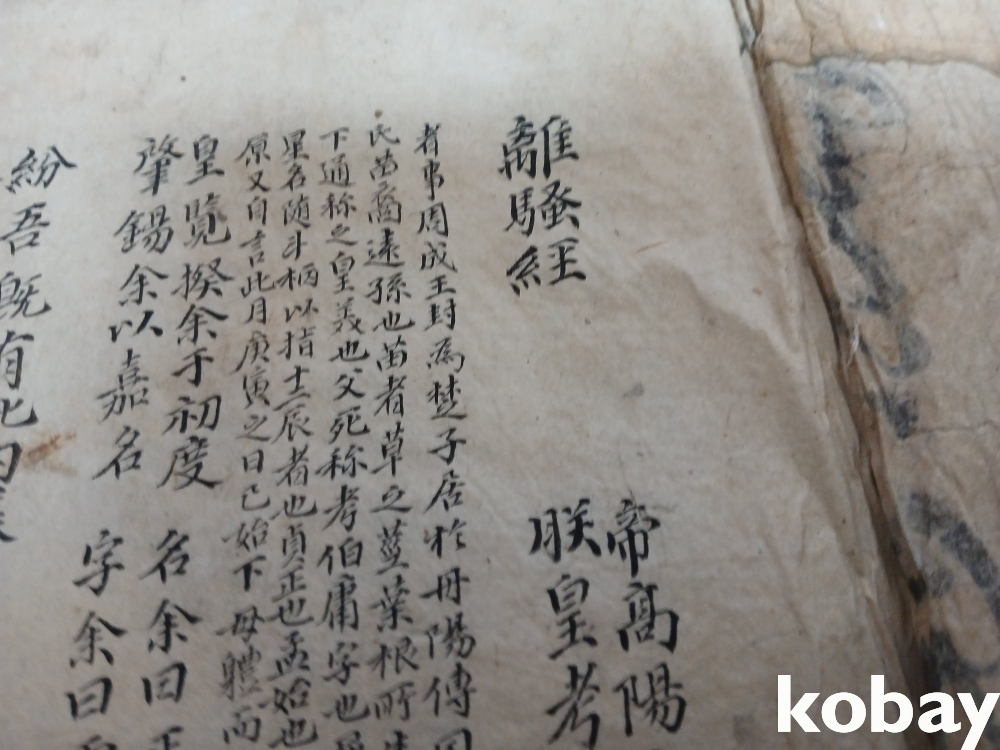 離騷經
帝高陽
朕皇考
者事周成王封為楚子居於丹陽傳
氏苗裔遠孫也苗者草之莖葉根所生
下通称之皇義也父死称考伯庸字也
星名随斗柄以指十二辰者也貞正也孟始也
原又自言此月庚寅之日己始下母體而
皇覽揆余于初度 名余曰正
肇錫余以嘉名 字余曰
紛吾既有此內美
kobay